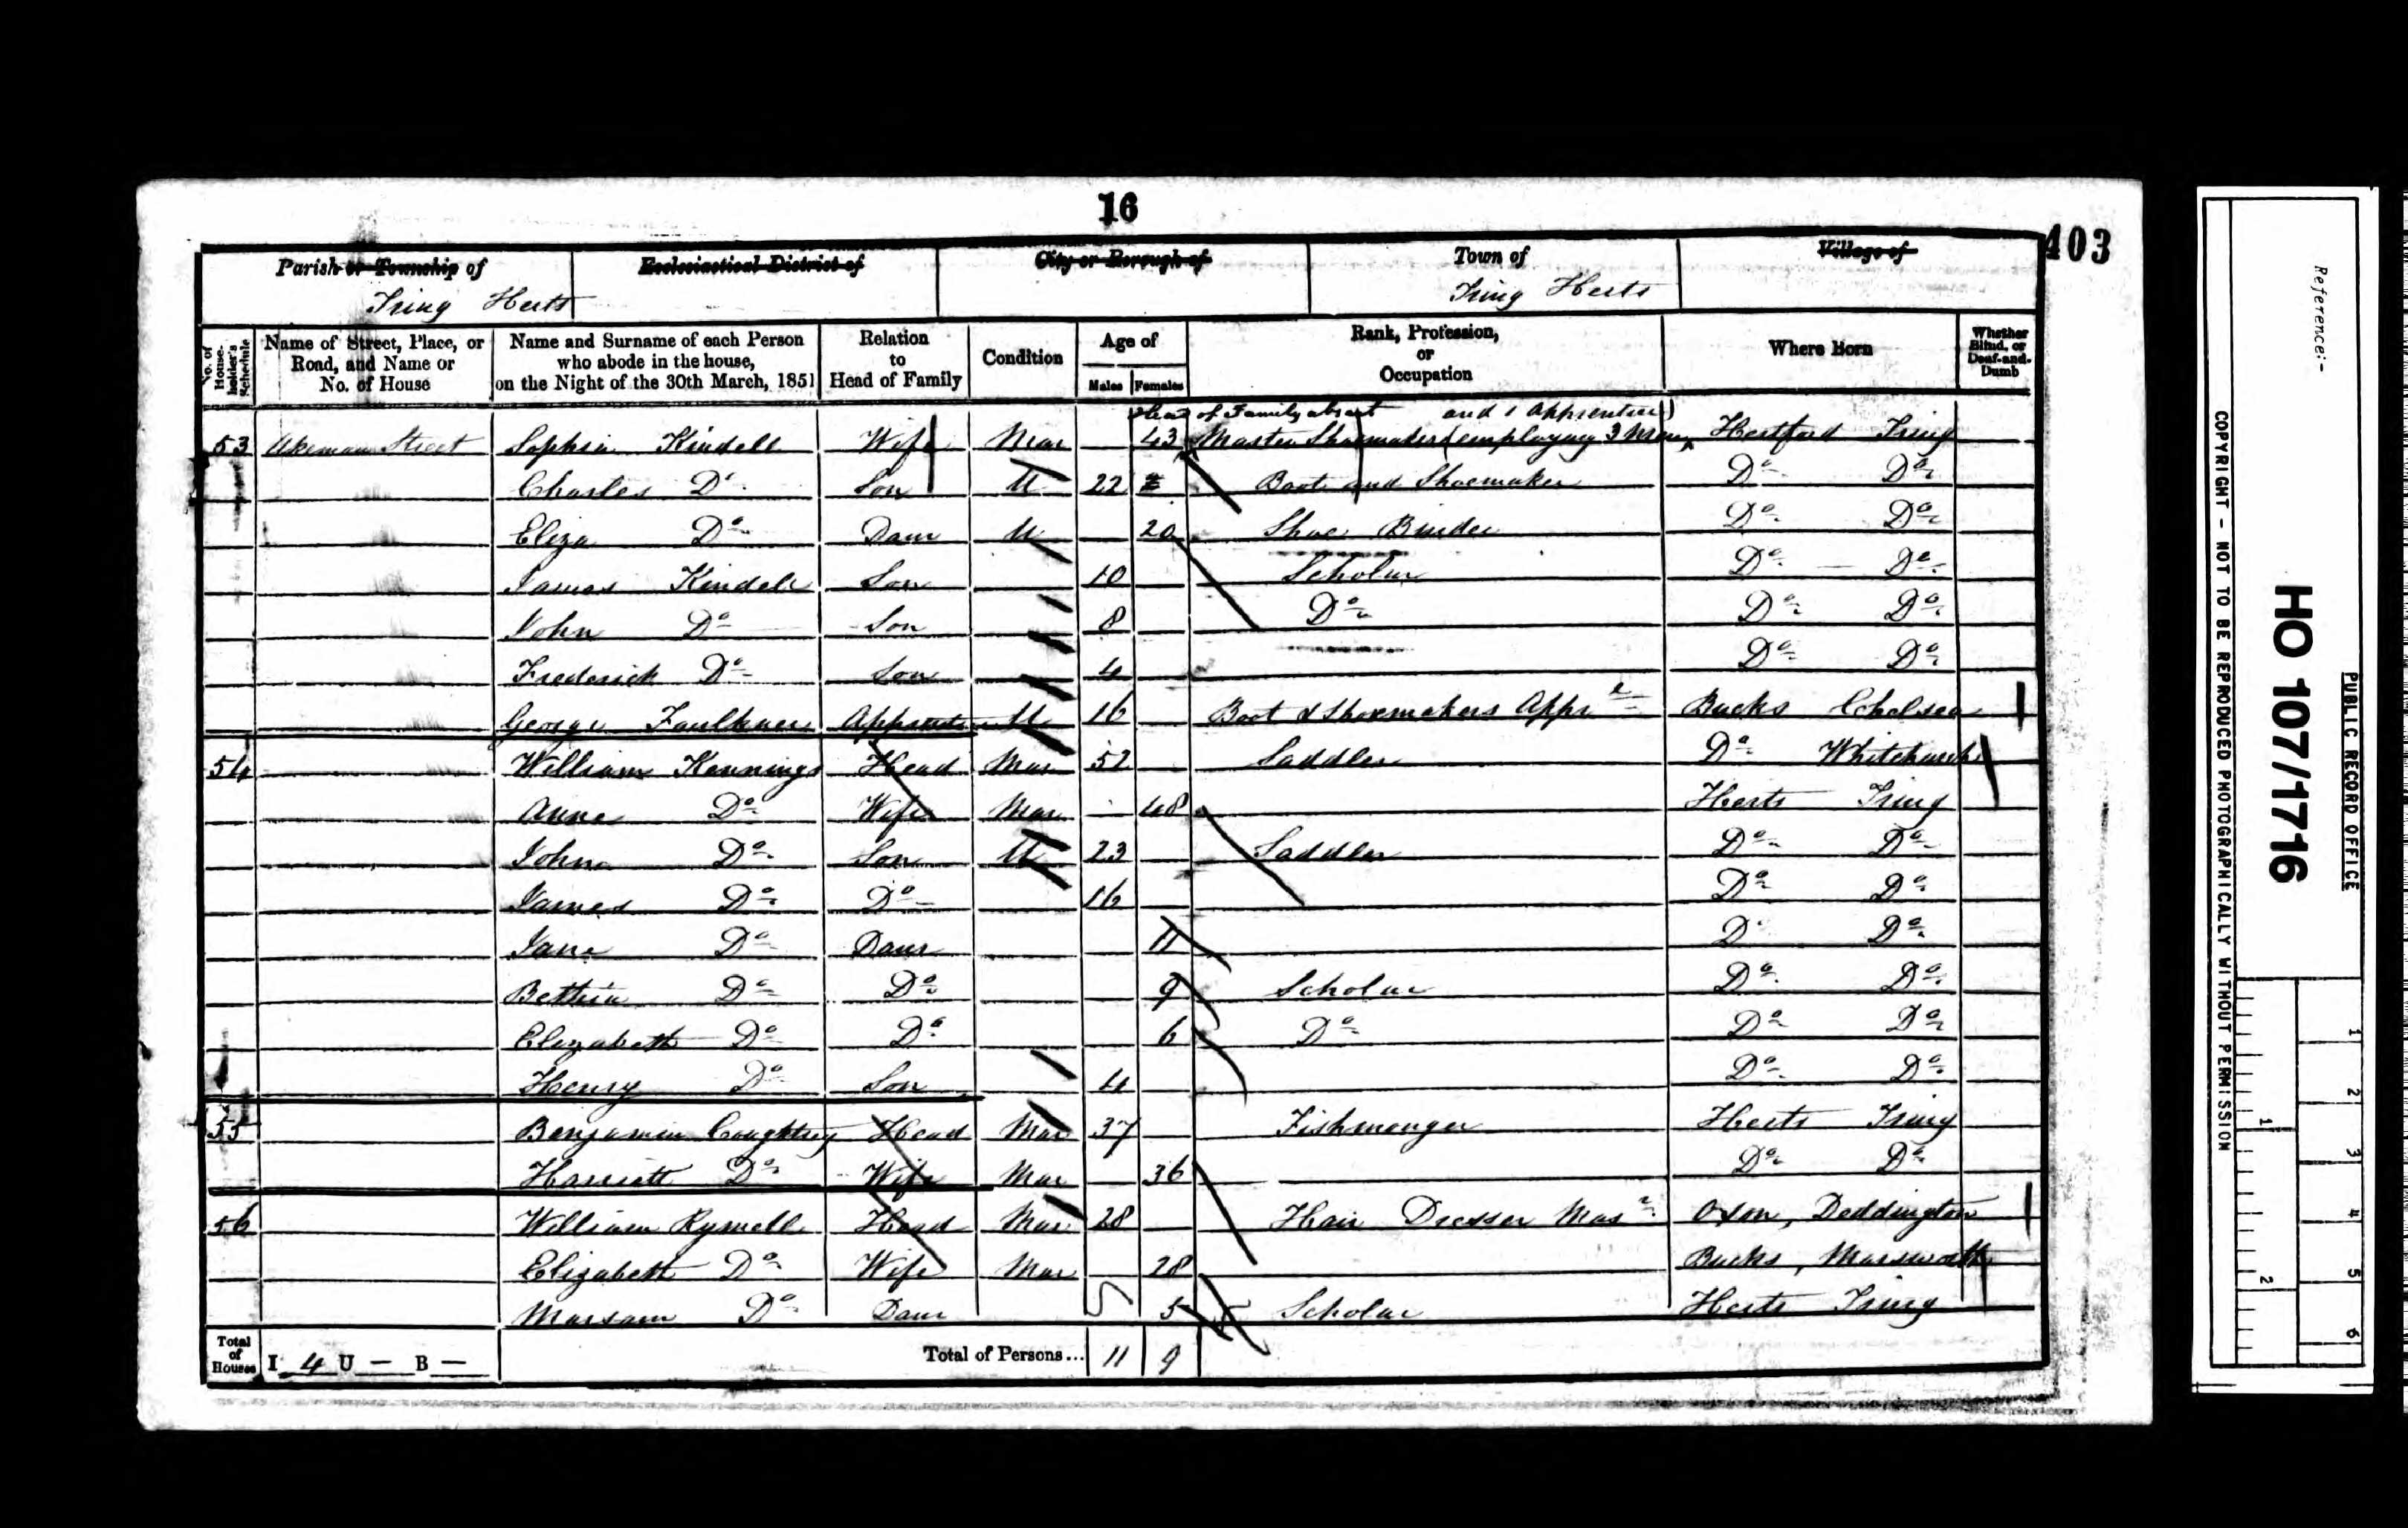 16
403
Parish or Township of
Ecclesiastical District of
City or Borough of
Town of
Village of
Tring Herts
Tring Herts
No. of House-holder's Schedule
Name of Street, Place, or Road, and Name or No. of House
Name and Surname of each Person who abode in the house, on the Night of the 30th March, 1851
Relation to Head of Family
Condition
Age of
Males Females
Rank, Profession, or Occupation
Where Born
Whether Blind, or Deaf-and-Dumb
Head of Family absent and 1 Apprentice)
53 Akeman Street Sophia Kindell Wife Mar 43 Master Shoemaker (employing 3 Men Hertford Tring
Charles Do Son U 22 Boot and Shoemaker Do Do
Eliza Do Daur U 20 Shoe Binder Do Do
James Kindell Son 10 Scholar Do Do
John Do Son 8 Do Do Do
Frederick Do Son 4 Do Do
George Faulkner U 16 Boot & Shoemakers Appre Bucks Chelsea
54 William Kennings Head Mar 52 Saddler Do Whitchurch
Anne Do Wife Mar 48 Herts Tring
John Do Son U 23 Saddler Do Do
James Do Do 16 Do Do
Jane Do Daur 11 Do Do
Bethia Do Do 9 Scholar Do Do
Elizabeth Do Do 6 Do Do Do
Henry Do Son 4 Do Do
55 Benjamin Coughtrey Head Mar 37 Fishmonger Herts Tring
Harriett Do Wife Mar 36 Do Do
56 William Rymell Head Mar 28 Hair Dresser Masr Oxon, Deddington
Elizabeth Do Wife Mar 28 Bucks, Marsworth
Do Daur 5 Scholar Herts Tring
Total of Houses I 4 U — B —
Total of Persons... 11 9
Reference:-
PUBLIC RECORD OFFICE
HO 107/1716
COPYRIGHT - NOT TO BE REPRODUCED PHOTOGRAPHICALLY WITHOUT PERMISSION
1 2 3 4 5 6
1 2